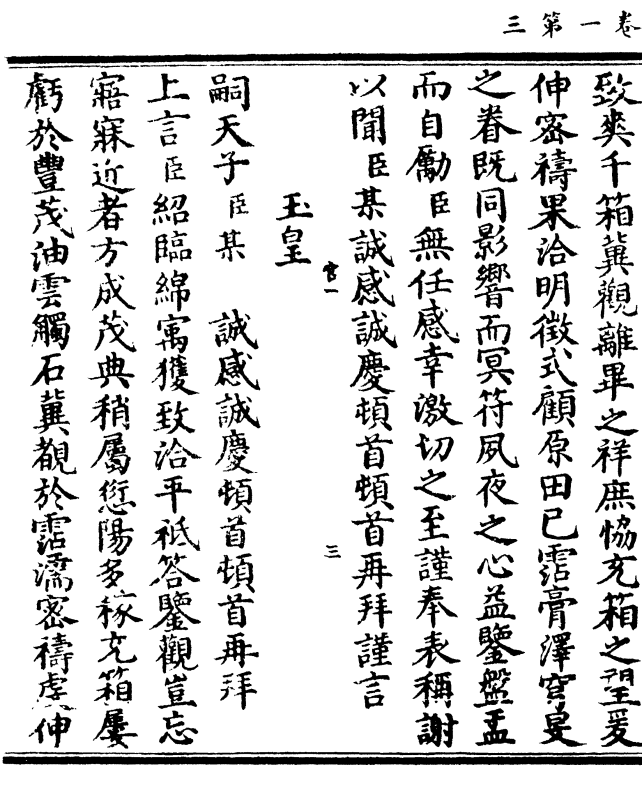 卷一第三
致爽千箱冀觀離畢之祥庶恊充箱之望爰
伸密禱果洽明徵式顧原田已霑膏澤穹旻
之眷既同影響而冥符夙夜之心益鑒盤盂
而自勵臣無任感幸激切之至謹奉表稱謝
以聞臣某誠感誠慶頓首頓首再拜謹言
玉皇
宮一
三
嗣天子臣某 誠感誠慶頓首頓首再拜
上言臣紹臨綿寓獲致洽平祇答鑒觀豈忘
寤寐近者方成茂典稍屬愆陽多稼充箱屢
虧於豐茂油雲觸石冀覩於霑濡密禱虔伸